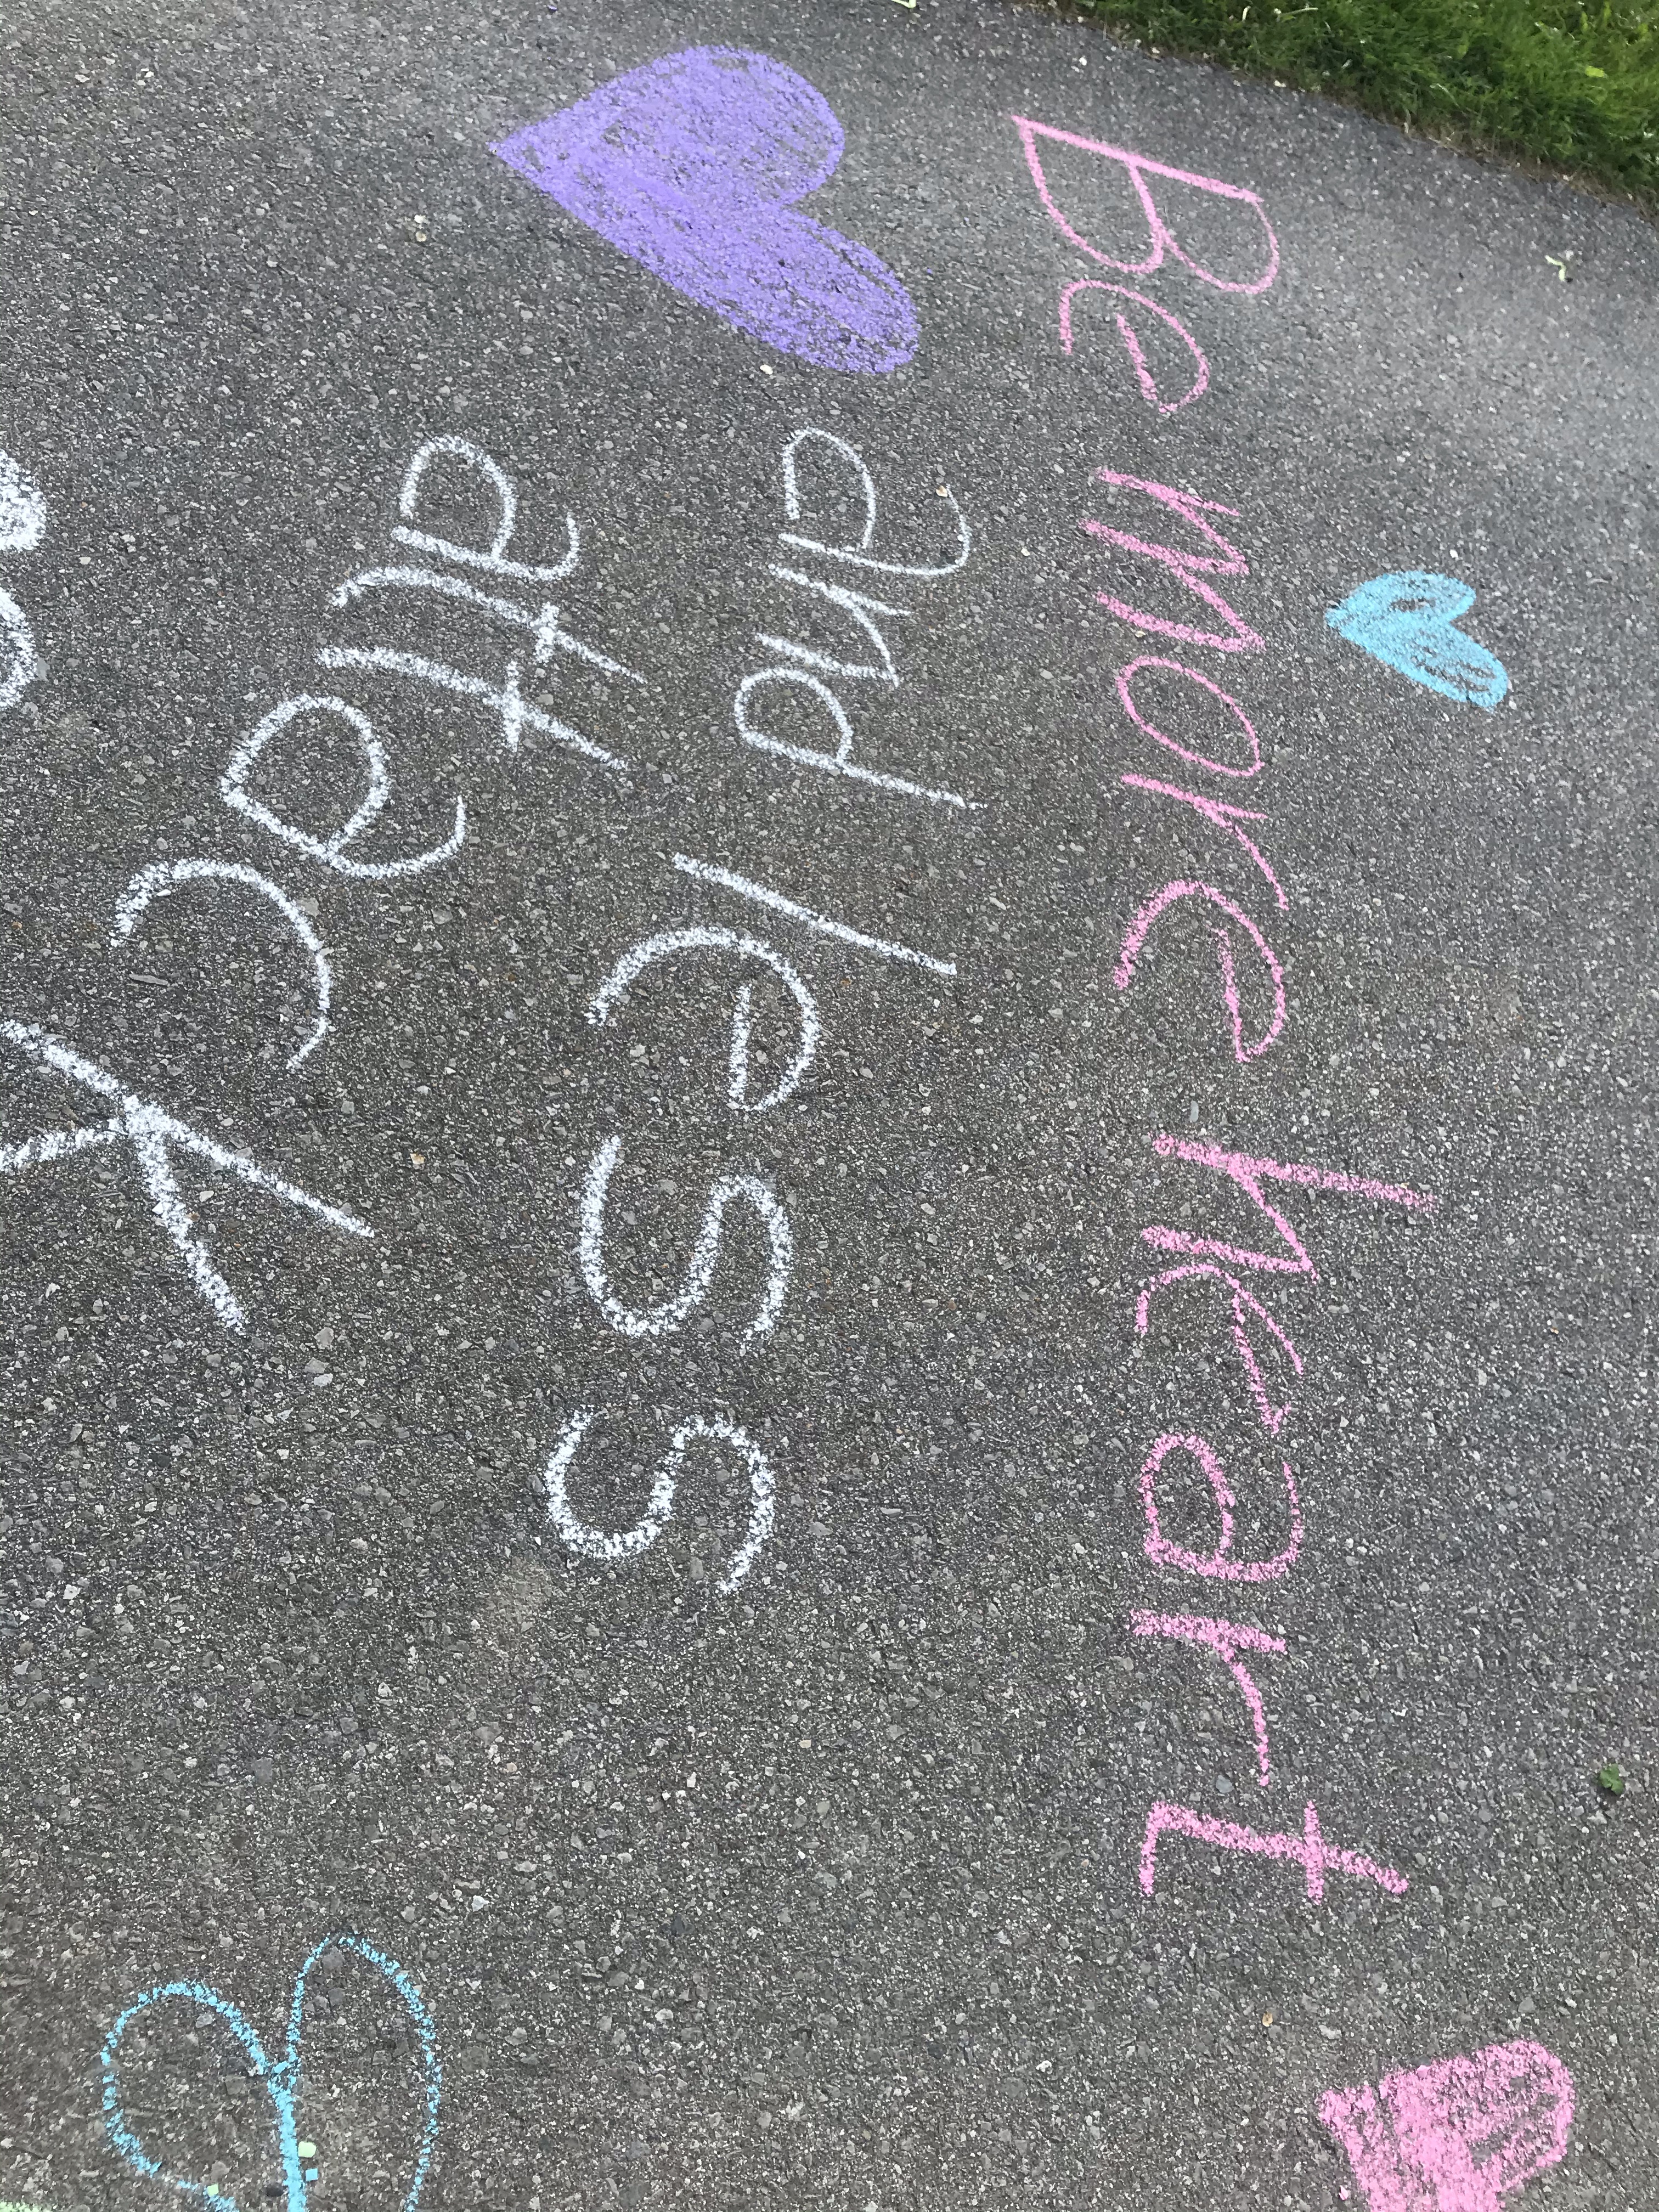 Be more heart
and less
attack